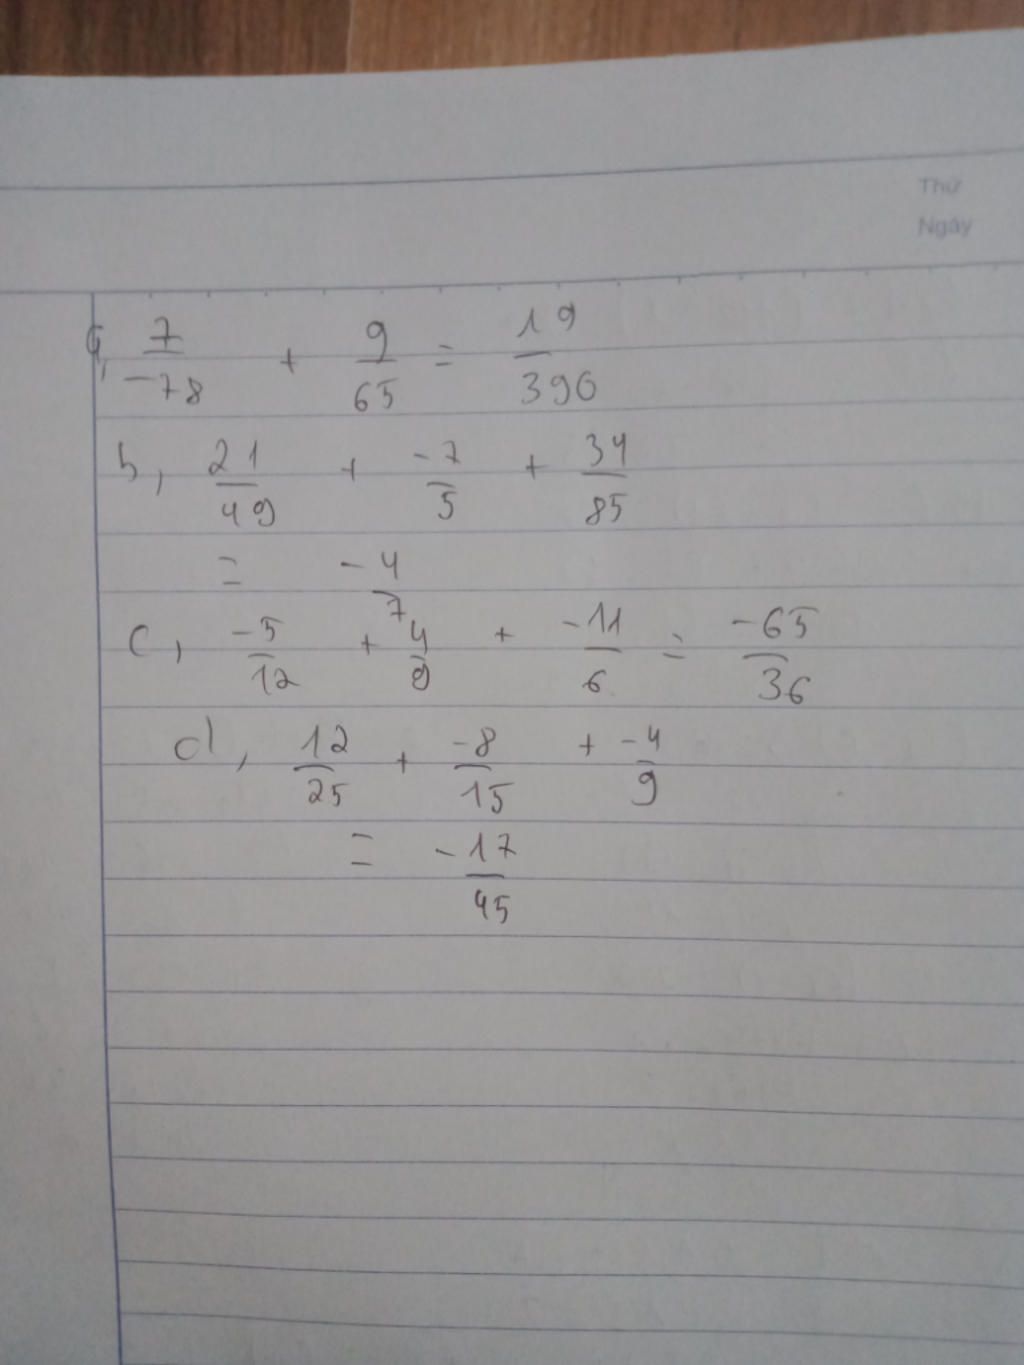 Thứ
Ngày
a, 7/-78 + 9/65 = 19/390
b, 21/49 + -7/5 + 34/85
= -4/7
c, -5/12 + 4/9 + -11/6 = -65/36
d, 12/25 + -8/15 + -4/9
= -17/45